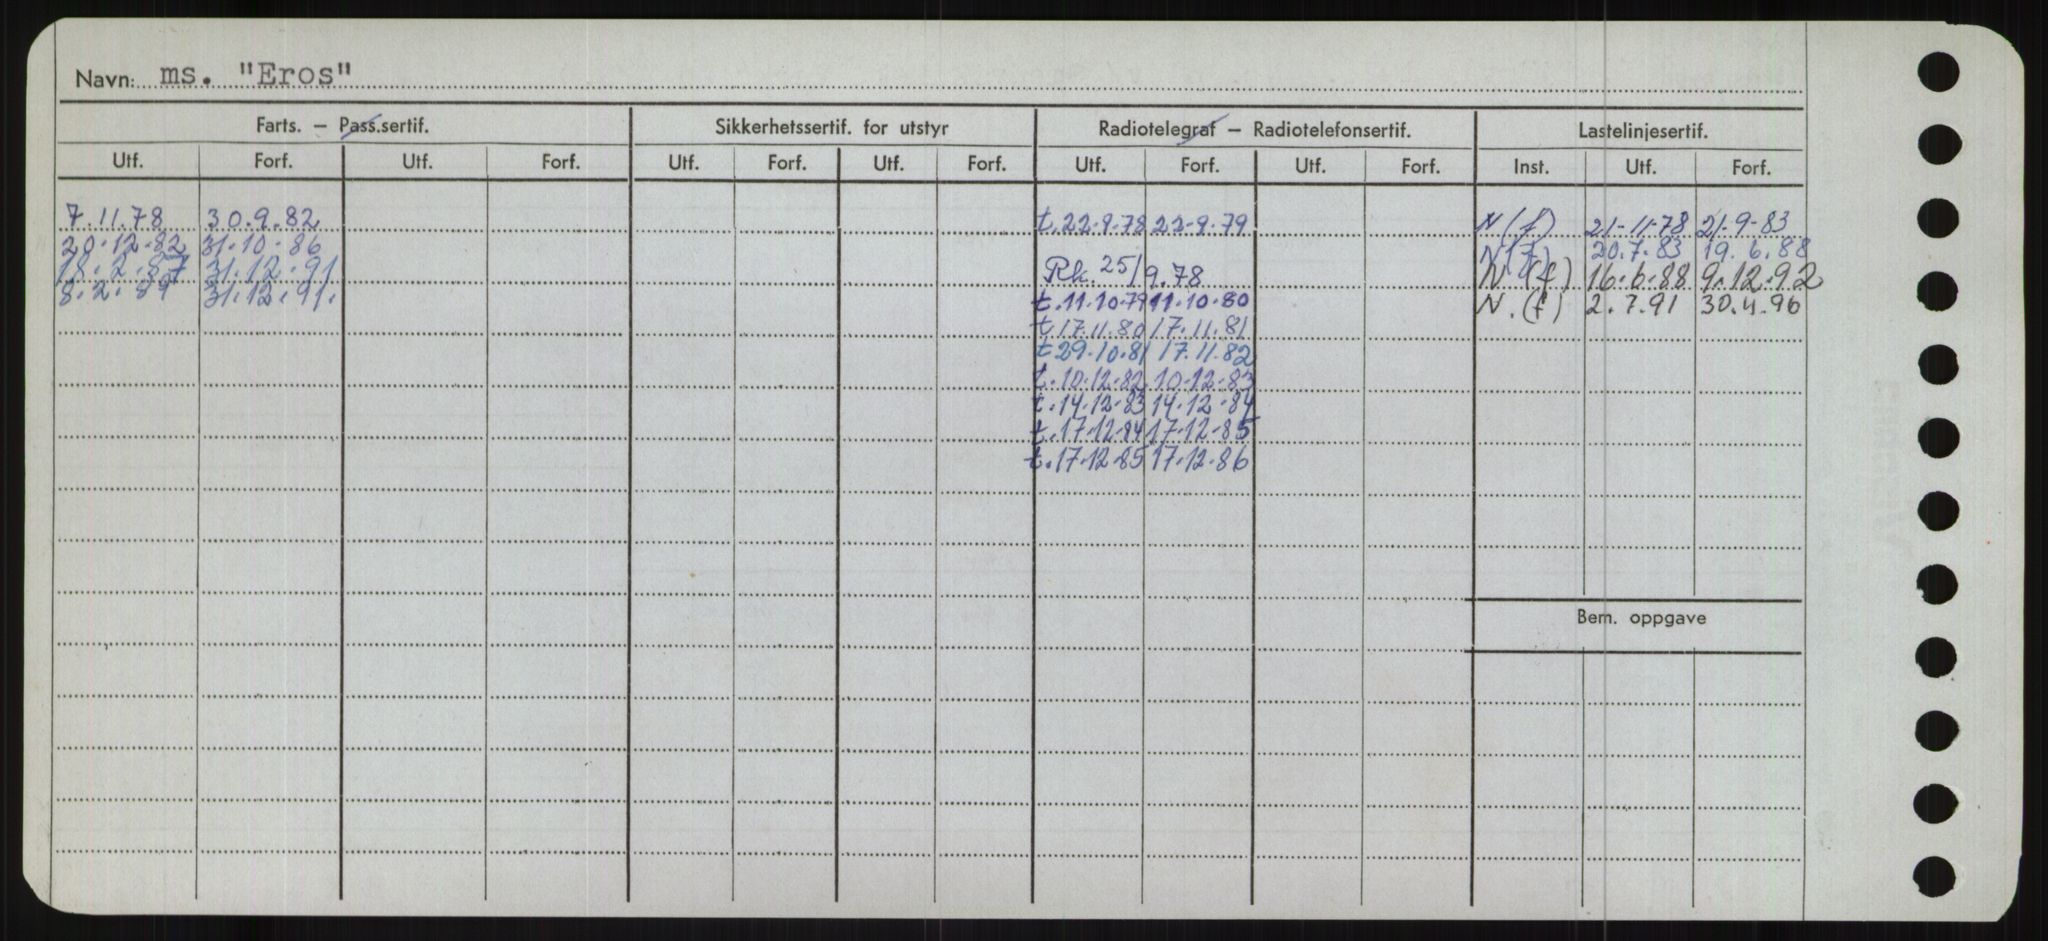 Navn: ms. "Eros"
Farts. – Pass.sertif. Sikkerhetssertif. for utstyr Radiotelegraf – Radiotelefonsertif. Lastelinjesertif.
Utf. Forf. Utf. Forf. Utf. Forf. Utf. Forf. Utf. Forf. Utf. Forf. Inst. Utf. Forf.
7.11.78 30.9.82 t.22-9-78 22-9-79 N(f) 21-11-78 21-9-83
20-12-82 31-10-86 N(f) 20.7.83 19.6.88
18.2.87 31.12.91 Rk. 25/9.78 N(f) 16.6.88 9.12.92
8.2.89 31.12.91. t.11.10.79 11.10.80 N.(f) 2.7.91 30.4.96
t.17.11.80 17.11.81
t 29.10.81 17.11.82
t.10-12-82 10-12-83
t.14-12-83 14-12-84
t.17-12-84 17-12-85
t.17-12-85 17-12-86
Bem. oppgave